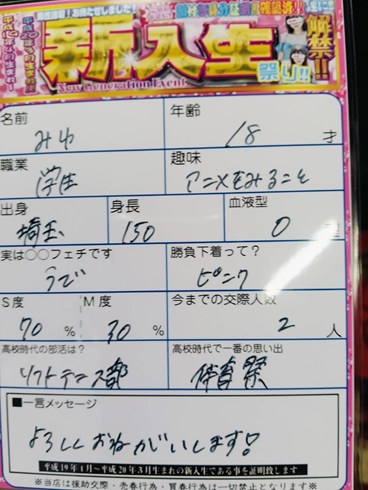 お待たせしました!
新入生
祭り!!
解禁!!
New Generation Event
名前 みゆ
年齢 18才
職業 学生
趣味 アニメをみること
出身 埼玉
身長 150
血液型 O
実は○○フェチです うで
勝負下着って? ピンク
S度 70%
M度 30%
今までの交際人数 2人
高校時代の部活は? ソフトテニス部
高校時代で一番の思い出 体育祭
■一言メッセージ
よろしくおねがいします!
平成19年1月~平成20年3月生まれの新入生である事を証明致します
※当店は援助交際・売春行為・買春行為は一切禁止となります※